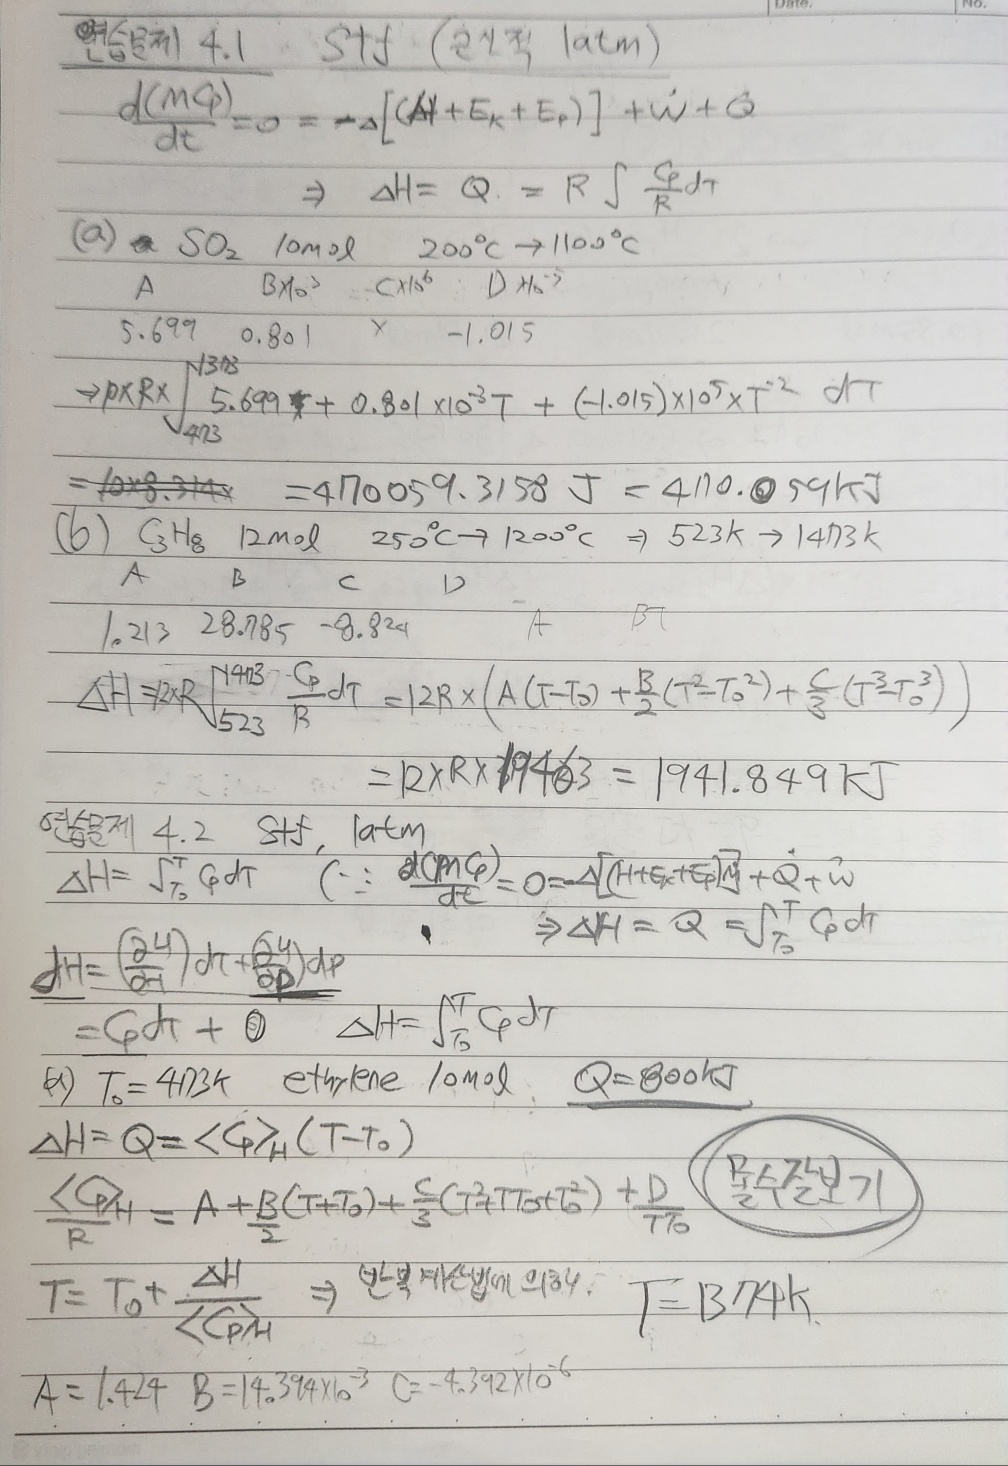 Date. No.
연습문제 4.1 Stf (온시적 1atm)
d(MCp)/dt = 0 = -Δ[(H + EK + EP)] + Ẇ + Q̇
⇒ ΔH = Q = R ∫ Cp/R dT
(a) SO2 10mol 200°C → 1100°C
A B×10^3 C×10^6 D×10^-5
5.699 0.801 × -1.015
→ 10×R× ∫_473^1373 5.699 + 0.801×10^-3 T + (-1.015)×10^5 × T^-2 dT
= 10×8.314× = 470059.3158 J = 470.059kJ
(b) C3H8 12mol 250°C → 1200°C ⇒ 523K → 1473K
A B C D
1.213 28.785 -8.824 A BT
ΔH = 12×R ∫_523^1473 Cp/R dT = 12R × (A(T-T0) + B/2 (T^2-T0^2) + C/3 (T^3-T0^3))
= 12×R×19463 = 1941.849kJ
연습문제 4.2 Stf, 1atm
ΔH = ∫_T0^T Cp dT (∵ d(MCp)/dt = 0 = -Δ[(H+EK+EP)M] + Q̇ + Ẇ
⇒ ΔH = Q = ∫_T0^T Cp dT
dH = (∂H/∂T) dT + (∂H/∂P) dp
= Cp dT + 0 ΔH = ∫_T0^T Cp dT
(a) T0 = 473K ethylene 10mol. Q = 800kJ
ΔH = Q = <Cp>H (T-T0)
<Cp>H/R = A + B/2 (T+T0) + C/3 (T^2+TT0+T0^2) + D/TT0 몰수잘보기
T = T0 + ΔH/<Cp>H ⇒ 반복계산법에 의하여. T = 1374K.
A = 1.424 B = 14.394×10^-3 C = -4.392×10^-6